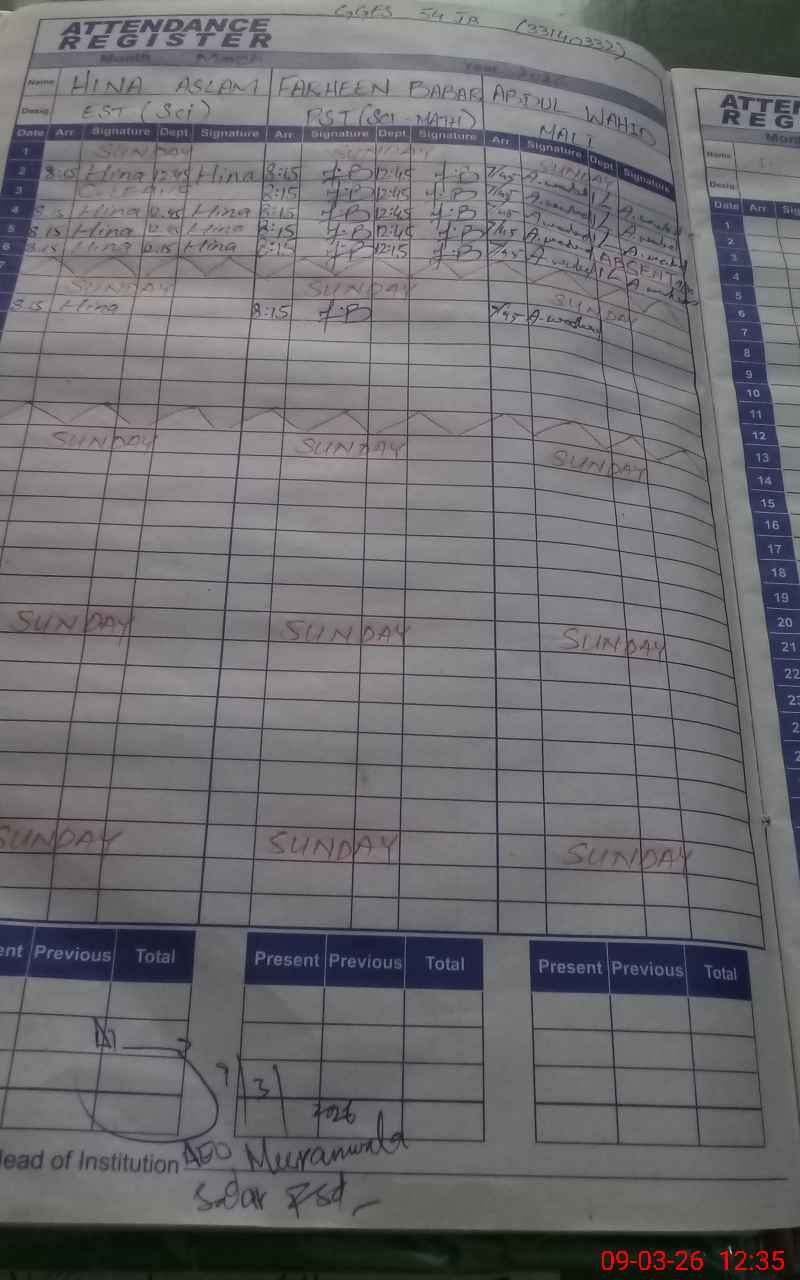 GGES 54 JB (33140332)
ATTENDANCE
REGISTER
Month March Year 2026
Name HINA ASLAM FARHEEN BABAR ABDUL WAHID
Desig EST (Sci) PST (SCI-MATH) MALI
Date Arr. Signature Dept. Signature Arr. Signature Dept. Signature Arr. Signature Dept Signature
1 SUNDAY SUNDAY SUNDAY
2 8:15 Hina 12:45 Hina 8:15 F.B 12:45 F.B 7/45 A.wahid
3 8:15 F.B 12:45 F.B 7/45 A.wahid
4 8:15 Hina 12:45 Hina 8:15 F.B 12:45 F.B 7/45 A.wahid
5 8:15 Hina Hina 8:15 F.B 12:45 F.B 7/45 A.wahid ABSENT
6 8:15 Hina 12:15 Hina 8:15 F.B 12:15 F.B 7/45 A.wahid
7
SUNDAY SUNDAY SUNDAY
8:15 Hina 8:15 F.B 7/45 A.wahid
SUNDAY SUNDAY SUNDAY
SUNDAY SUNDAY SUNDAY
SUNDAY SUNDAY SUNDAY
ent Previous Total Present Previous Total Present Previous Total
9/3/2026
ead of Institution AEO Meeranwala
Sadar Fsd
ATTEN
REG
Mont
Name
Desig
Date Arr. Sig
1
2
3
4
5
6
7
8
9
10
11
12
13
14
15
16
17
18
19
20
21
22
2
2
2
09-03-26 12:35